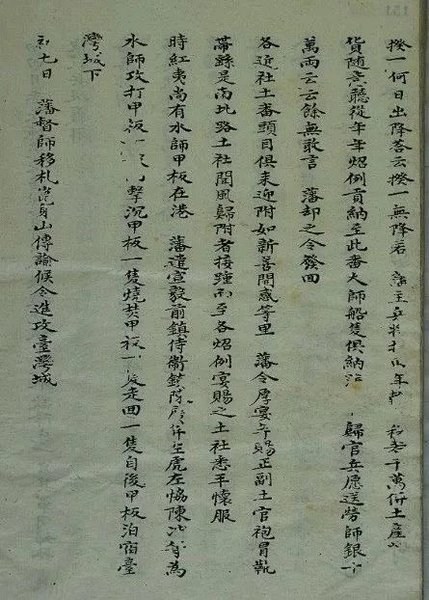 揆一何日出降答云揆一無降者 藩主
貨隨意聽從年年炤例貢納至此番大師船隻俱納 歸官兵愿送勞師銀十
萬兩云云餘無敢言 藩却之令發回
各近社土番頭目俱來迎附如新善開感等里 藩令厚宴 賜正副土官袍冒靴
帶繇是南北路土社聞風歸附者接踵而至各炤例宴賜之土社悉平懷服
時紅夷尚有水師甲板在港 藩遣宣毅前鎮侍衛鎮陳 左虎左協陳 為
水師攻打甲板 擊沉甲板一隻燒焚甲板一 走回一隻自後甲板泊宿臺
灣城下
初七日 藩督師移札崑身山傳諭候令進攻臺灣城